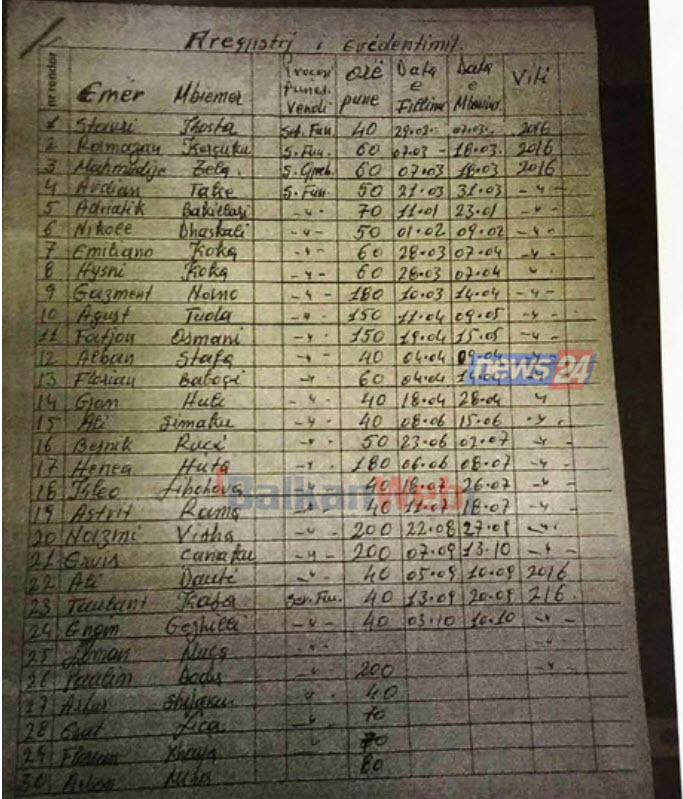 Rregjistri i evidentimit.
nr rendor Emër Mbiemer Procesi Punes. Vendi Orë pune Data e Fillimi Data e Mbarimi Viti
1 Stavri Kosta Ser. Fun. 40 29.02. 07.03. 2016
2 Ramazan S. Fun. 60 07.03 - 18.03. 2016
3 Mahmudije Zela. 60 07.03 18.03 2016
4 Ardian Take S. Fun. 50 21.03 31.03 -"-
5 Adriatik -"- 70 11.01 23.01 -"-
6 Nikoll Dhaskali -"- 50 01.02 09.02 -"-
7 Emiliano Koka -"- 60 28.03 07.04 -"-
8 Hysni Koka -"- 60 28.03 07.04 "
9 Gazment -"- 180 10.03 14.04 -"-
10 Agust Tuola -"- 150 11.04 09.05 -"-
11 Fatjon Osmani -"- 150 19.04 15.05 -"-
12 Alban Stafa -"- 40 04.04 09.04 "
13 Florian -"- 60 04.04
news 24
14 Gjon Huti -"- 40 18.04 28.04 "
15 Ali Simaku -"- 40 08.06 15.06 -"-
16 Besnik Ruçi -"- 50 23.06 02.07 -"-
17 Huta -"- 180 06.06 08.07 -"-
18 Kleo Libohova -"- 40 18.07 26.07 -"-
BalkanWeb
19 Astrit Rama -"- 40 11.07 18.07 -"-
20 Visha -"- 200 22.08 -"-
21 Ervis Canaku -"- 200 07.09 13.10 -"-
22 Ali Dauti " 40 05.09 10.09 2016
23 Taulant Ser. Fun. 40 13.09 20.09 216.
24 -"- 40 03.10 10.10 -"-
25 -"- -"-
26 Paulin " 200 -"-
27 " 40
28 -"- 70
29 Florian " 70
30 80